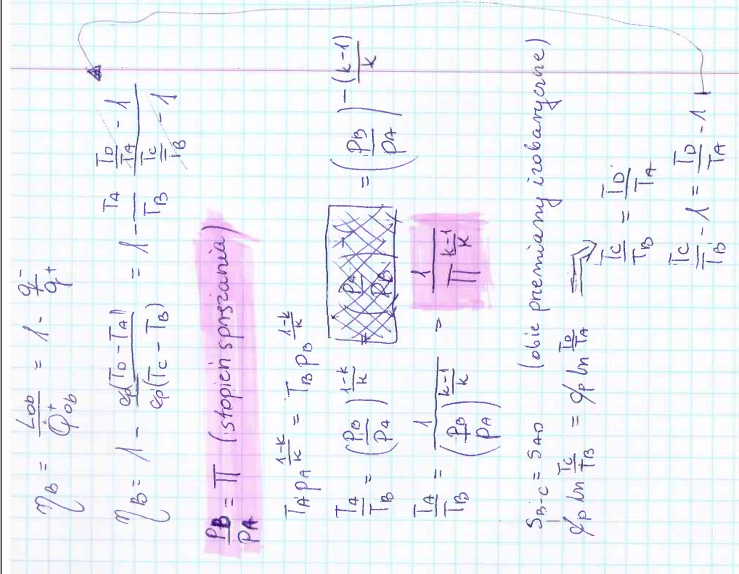 η_B = L_ob / Q^+_ob = 1 - q^- / q^+
η_B = 1 - cp(T_D - T_A) / cp(T_C - T_B) = 1 - T_A / T_B · (T_D/T_A - 1) / (T_C/T_B - 1)
P_B / P_A = Π (stopień sprężania)
T_A P_A^{(1-k)/k} = T_B P_B^{(1-k)/k}
T_A / T_B = (P_B / P_A)^{(1-k)/k} = (P_B / P_A)^{-(k-1)/k}
T_A / T_B = 1 / (P_B / P_A)^{(k-1)/k} = 1 / Π^{(k-1)/k}
S_{B-C} = S_{AD} (obie przemiany izobaryczne)
cp ln T_C/T_B = cp ln T_D/T_A ⇒ T_C/T_B = T_D/T_A
T_C/T_B - 1 = T_D/T_A - 1